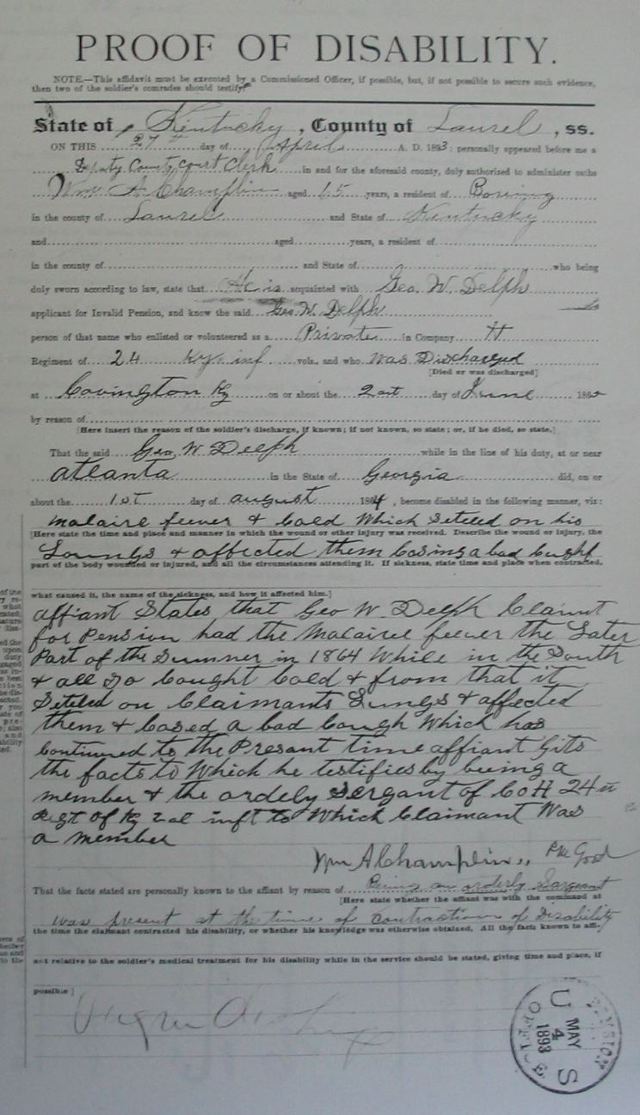 PROOF OF DISABILITY.
NOTE.—This affidavit must be executed by a Commissioned Officer, if possible, but, if not possible to secure such evidence,
then two of the soldier's comrades should testify.
State of Kentucky, County of Laurel, ss.
ON THIS 27th day of April A. D. 1893; personally appeared before me a
Deputy County Court Clerk in and for the aforesaid county, duly authorised to administer oaths
Wm A Champlin aged years, a resident of Boreing
in the county of Laurel and State of Kentucky
and aged years, a resident of
in the county of and State of who being
duly sworn according to law, state that He is acquainted with Geo. W. Delph
applicant for Invalid Pension, and know the said Geo. W. Delph
person of that name who enlisted or volunteered as a Private in Company H
Regiment of 24 Ky. inf vols., and who was Discharged
[Died or was discharged]
at Covington Ky on or about the day of June 186
by reason of
[Here insert the reason of the soldier's discharge, if known; if not known, so state; or, if he died, so state.]
That the said Geo. W Delph while in the line of his duty, at or near
atlanta in the State of Georgia did, on or
about the 1st day of august 1864, become disabled in the following manner, viz:
malaire feever & Cold Which Seteled on his
[Here state the time and place and manner in which the wound or other injury was received. Describe the wound or injury, the
Loungs & affected them Cosing a bad Cought
part of the body wounded or injured, and all the circumstances attending it. If sickness, state time and place when contracted,
what caused it, the name of the sickness, and how it affected him.]
affiant States that Geo W. Delph Claimt
for Pension had the Malairee feever the Later
Part of the Summer in 1864 While in the South
& all so Cought Cold & from that it
Seteled on Claimants Lungs & affected
them & Cosed a bad Cough Which has
Continued to the Presant time affiant Gits
the facts to Which he testifies by being a
member & the ordely Sergant of Co H 24
Regt of Ky inft to Which Claimant Was
a member
Wm A Champlin
That the facts stated are personally known to the affiant by reason of Being an orderly Sargeant
[Here state whether the affiant was with the command at
was present at the time of contraction of Disability
the time the claimant contracted his disability, or whether his knowledge was otherwise obtained. All the facts known to affi-
ant relative to the soldier's medical treatment for his disability while in the service should be stated, giving time and place, if
possible]
U S PENSION OFFICE
MAY
4
1893